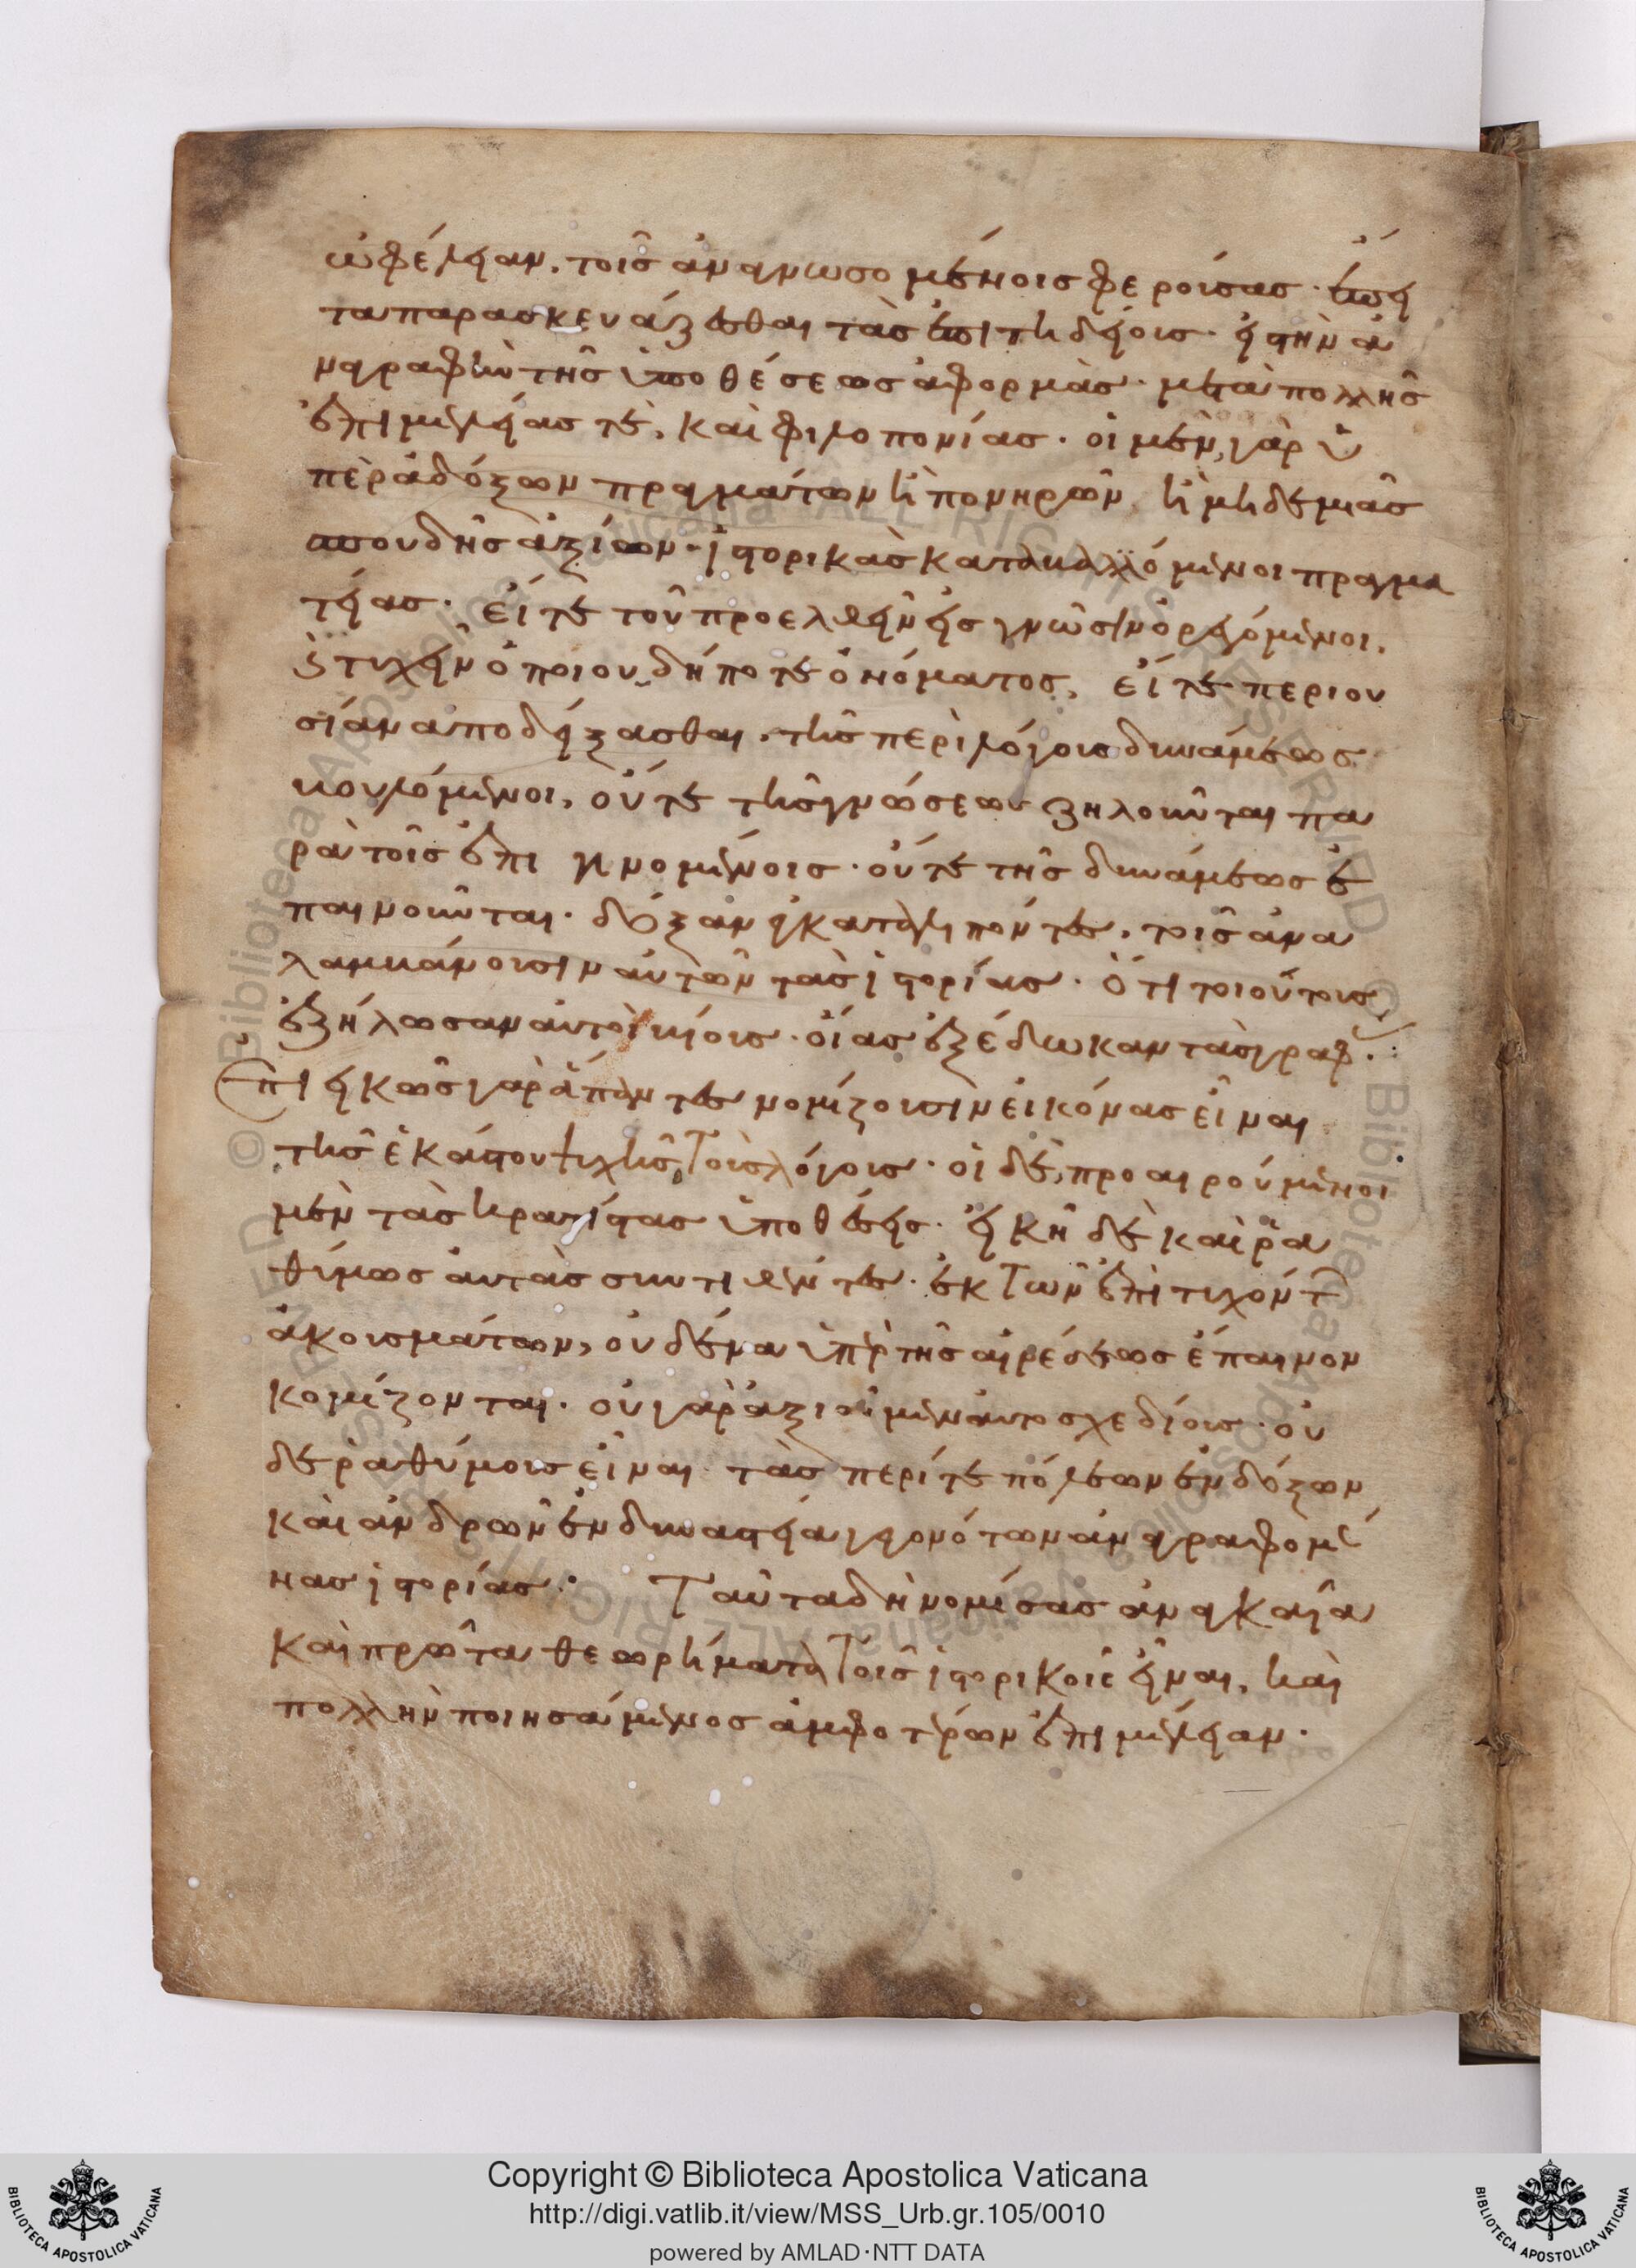 ὠφέλειαν. τοῖς ἀναγνωσομένοις φερούσας. ἔπει
τα παρασκευάζεσθαι τὰς ἐπιτηδείους. εἰς τὴν ἀ
ναγραφὴν τῆς ὑποθέσεως ἀφορμὰς. μετὰ πολλῆς
ἐπιμελείας τὲ, καὶ φιλοπονίας. οἱ μὲν γὰρ ὑ
πὲρ ἀδόξων πραγμάτων ἢ πονηρῶν, ἢ μηδεμιᾶς
σπουδῆς ἀξίων. ἱστορικὰς καταβαλλόμενοι πραγμα
τείας. εἴτε τοῦ προελθεῖν εἰς γνῶσιν ὀρεγόμενοι.
ἢ τυχεῖν ὁποιουδήποτε ὀνόματος, εἴτε περιου
σίαν ἀποδείξασθαι. τῆς περὶ λόγους δυνάμεως
βουλόμενοι, οὔτε τῆς γνώσεως ζηλοῦνται πα
ρὰ τοῖς ἐπιγινομένοις. οὔτε τῆς δυνάμεως ἐ
παινοῦνται. δόξαν ἐγκαταλιπόντες. τοῖς ἀνα
λαμβάνουσιν αὐτῶν τὰς ἱστορίας. ὅτι τοιούτους
ἐζήλωσαν αὐτοὶ βίους. οἵας ἐξέδωκαν τὰς γραφ.
ἐπιεικῶς γὰρ ἅπαντες νομίζουσιν εἰκόνας εἶναι
τῆς ἑκάστου ψυχῆς, τοὺς λόγους. οἱ δὲ, προαιρούμενοι
μὲν τὰς κρατίστας ὑποθέσεις. εἰκῆ δὲ καὶ ῥα
θύμως αὐτὰς συντιθέντες. ἐκ τῶν ἐπιτυχόντ
ἀκουσμάτων, οὐδένα ὑπὲρ τῆς αἱρέσεως ἔπαινον
κομίζονται. οὐ γὰρ ἀξιοῦμεν αὐτοσχεδίους. οὐ
δὲ ῥαθύμους εἶναι τὰς περί τε πόλεων ἐνδόξων
καὶ ἀνδρῶν ἐν δυναστεία γεγονότων ἀναγραφομέ
νας ἱστορίας. Ταῦτα δὴ νομίσας ἀναγκαῖα
καὶ πρῶτα θεωρήματα τοῖς ἱστορικοῖς εἶναι, καὶ
πολλὴν ποιησάμενος ἀμφοτέρων ἐπιμέλειαν.
Copyright © Biblioteca Apostolica Vaticana
http://digi.vatlib.it/view/MSS_Urb.gr.105/0010
powered by AMLAD·NTT DATA
BIBLIOTECA APOSTOLICA VATICANA
BIBLIOTECA APOSTOLICA VATICANA